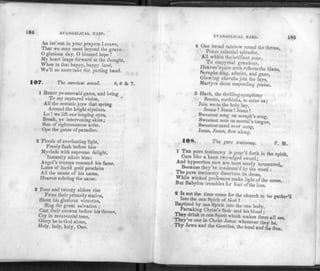 184 EVANGELICAL HARP.
An int'rest in your prayers I crave,
That we may meet beyond the grave.
O glorious day, O blessed hope!
My heart leaps forward at the thought,
When in that happy, happy land,
We'll no more take the parting hand.
107. The sweetest sound. 6, 6 & 7.
1 BRIGHT scenes and game, and bring
To my raptured vision,
All the ecstatic joys that spring
Around the bright elysium.
Lo! we lift our longing eyes,
Break, ye intervening skies;
Sun of righteousness arise,
Ope the gates of paradise.
2 Floods of everlasting light,
Freely flash before him
Myriads with supreme delight,
Instantly adore him:
Angel's trumps resound his fame,
Lutes of lucid gold proclaim
All the music of his name,
Heaven echoing the same.
3 Four and twenty elders rise
From their princely station,
Shout his glorious victories,
Sing the great salvation;
Cast their crowns before his throne,
Cry in reverential tone,
Glory be to God alone,
Holy, holy, holy, One.
EVANGELICAL HARP. 185
4 One broad rainbow round the throne,
Point celestial splendor,
All within the brilliant zone,
To empyreal grandeur,
Heaven's pure arch reflects the blaze,
Seraphs sing, admire, and gaze,
Glowing cherubs join the lays,
Martyrs shout responding praise.
5 Hark, the thrilling symphony
Seems, methinks, to seize us;
Join we to the holy lay,
Jesus! Jesus! Jesus!
Sweetest song on seraph's song,
Sweetest note on mortal's tongue,
Sweetest carol ever sung,
Jesus, Jesus, flow along.
108. The pure testimony. P. M.
1 THE pure testimony is pour'd forth in the spirit,
Cuts like a keen two-edged sword;
And hypocrites now are most sorely tormented,
Because they're condemn'd by the word:
The pure testimony discovers its dross,
While wicked professors make light of the cross,
But Babylon trembles for fear of the loss.
2 Is not the time come for the church to be gather'd
Into the one Spirit of God?
Baptized by one Spirit into the one body,
Partaking Christ's flesh and his blood;
They drink in one Spirit which makes them all see,
They're one in Christ Jesus wherever they be,
The Jews and the Gentiles, the bond and the free.